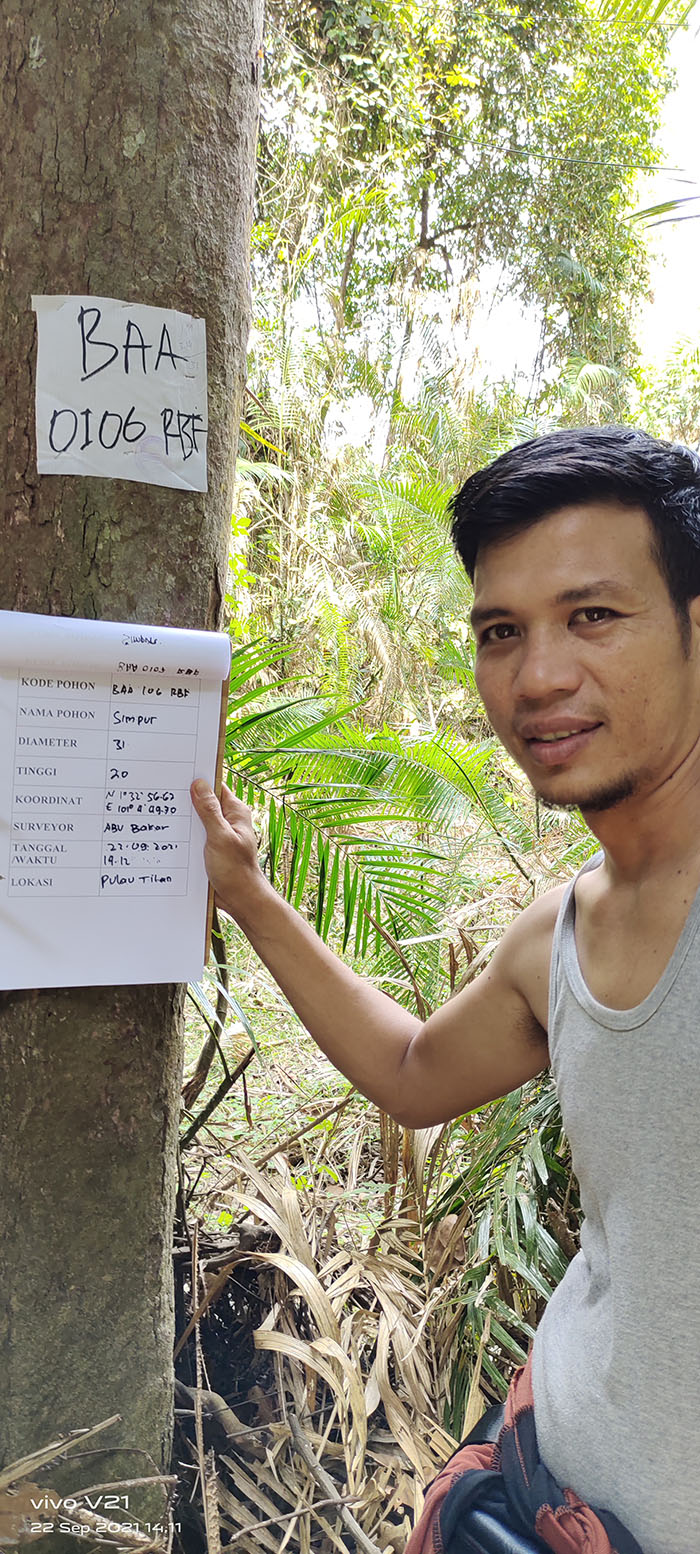 BAA
0106 RBF
KODE POHON BAA 106 RBF
NAMA POHON Simpur
DIAMETER 31
TINGGI 20
KOORDINAT N 1° 32' 56.62
E 101°
SURVEYOR ABU Bakar
TANGGAL 22.09.2021
/WAKTU 14.12
LOKASI Pulau Tilan
vivo V21
22 Sep 2021 14:11